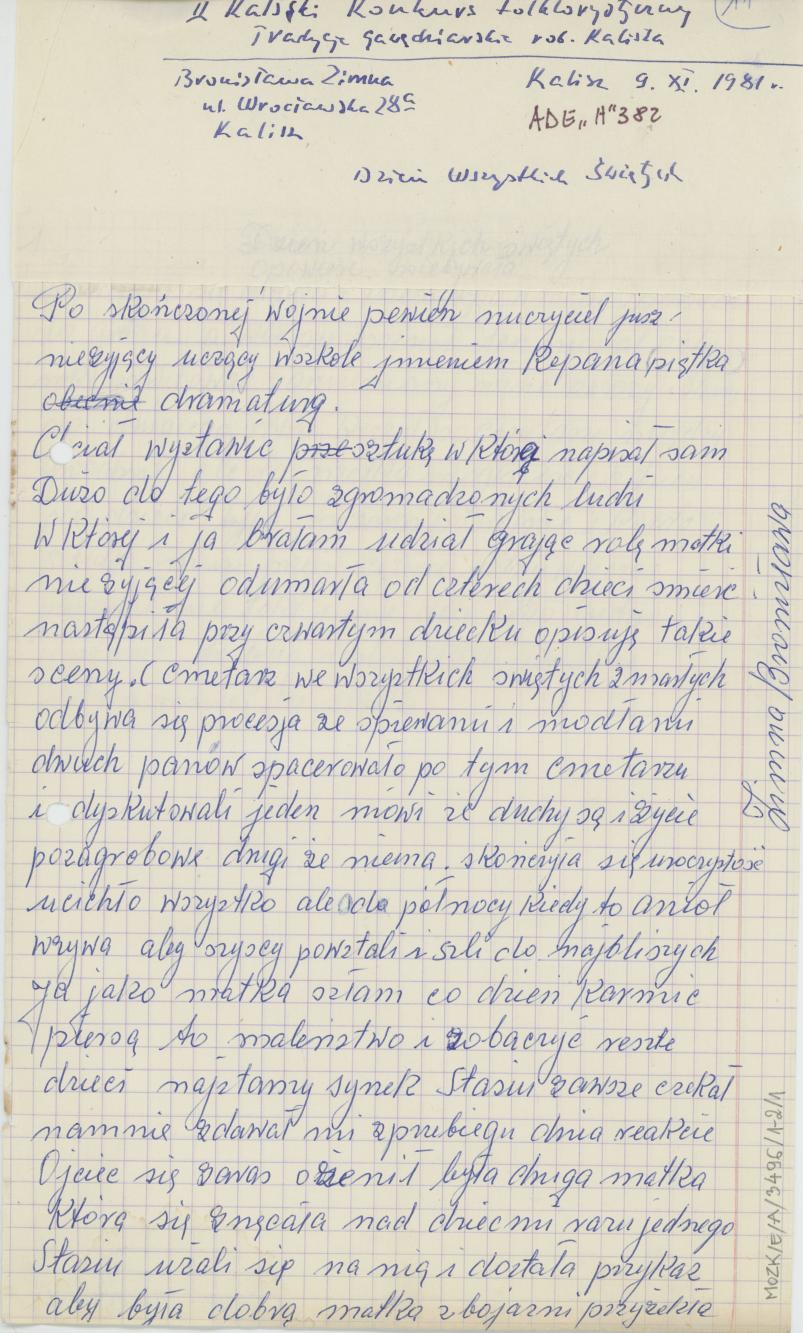 II Kaliski Konkurs Folklorystyczny
Tradycje gawędziarskie reg. Kalisza
Bronisława Zimna
ul. Wrocławska 28a
Kalisz
Kalisz 9. XI. 1981 r.
ADE „H" 382
Dzień Wszystkich Świętych
Po skończonej wojnie pewien nuczyciel jusz
nieżyjący uczący wszkole jmieniem Repana piątka
obecnie dramaturg.
Chciał wyztawić prze sztukę w którą napisał sam
Dużo do tego było zgromadzonych ludzi
W której i ja brałam udział grając rolę matki
nieżyjącej odumarła od czterech dzieci smierć
nastąpiła przy czwartym dziecku opisuję takie
sceny. (Cmetarz we wszyztkich swiętych zmarłych
odbywa się procesja ze spiewami i modłami
dwuch panów spacerowało po tym cmetarzu
i dyskutowali jeden mówi że duchy są i życie
pozagrobowe drugi że niema. skończyła się uroczystość
ucichło wszyztko ale do północy kiedy to anioł
wzywa aby wszyscy powztali i szli do najbliszych
Ja jako matka szłam co dzień karmić
piersą to maleńztwo i zobaczyć reszte
dzieci najztarszy synek Stasiu zawsze czekał
namnie zdawał mi zprzebiegu dnia reakcie
Ojciec się zaras ożenił była druga matka
która się znęcała nad dziecmi razu jednego
Stasiu użali się na nią i doztała przykaz
aby była dobrą matka zbojazni przyżekła
Zimna Bronisława
MOZK/E/A/3496/1-2/1